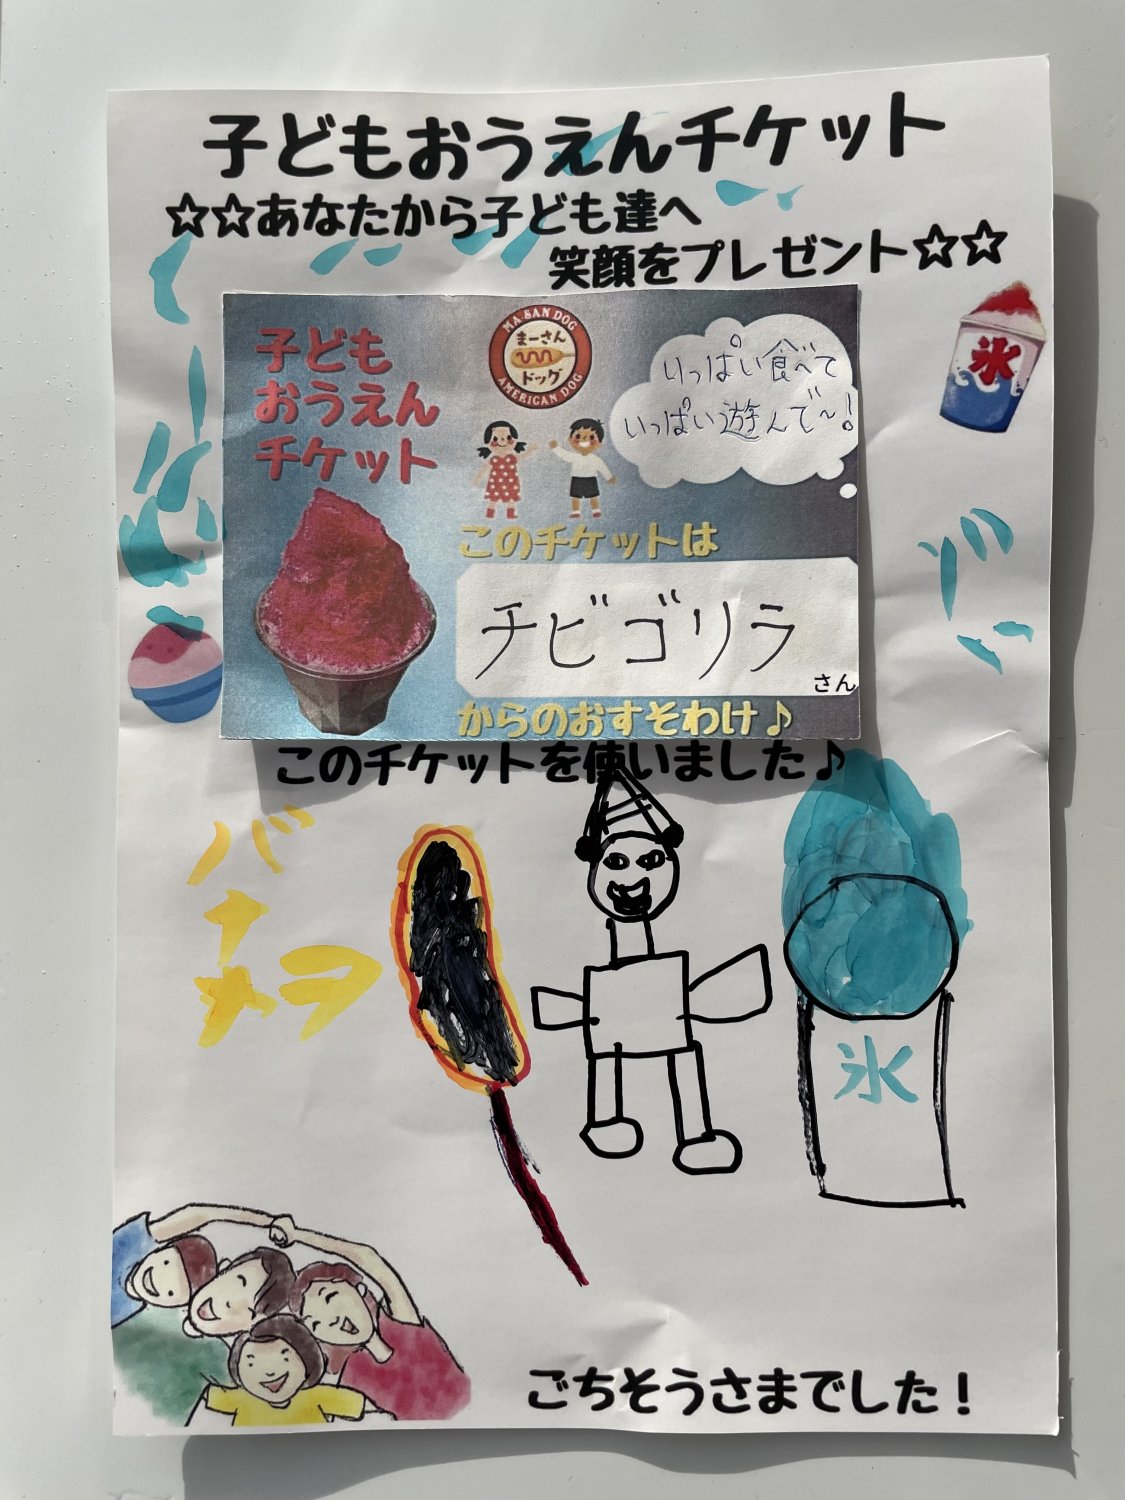 子どもおうえんチケット
☆☆あなたから子ども達へ
笑顔をプレゼント☆☆
氷
子ども
おうえん
チケット
MA-SAN DOG
まーさん
ドッグ
AMERICAN DOG
いっぱい食べて
いっぱい遊んで～!
このチケットは
チビゴリラ
さん
からのおすそわけ♪
このチケットを使いました♪
バナメラ
氷
ごちそうさまでした！